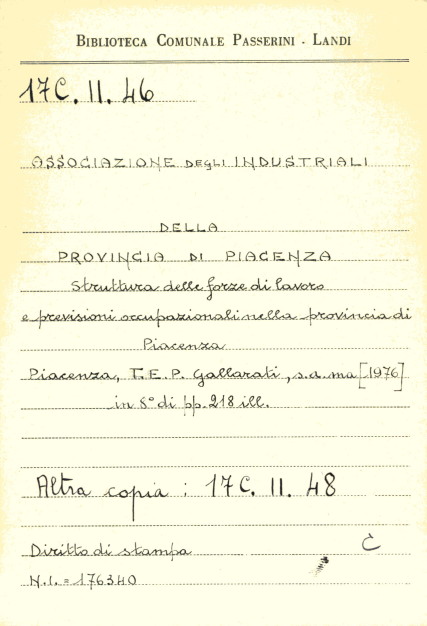 BIBLIOTECA COMUNALE PASSERINI - LANDI
17C. II. 46
ASSOCIAZIONE DEGLI INDUSTRIALI
DELLA
PROVINCIA DI PIACENZA
Struttura delle forze di lavoro
e previsioni occupazionali nella provincia di
Piacenza
Piacenza, T.E.P. Gallarati, s.a. ma [1976]
in 8° di pp. 218 ill.
Altra copia : 17C. II. 48
Diritto di stampa C
N.I. = 176340